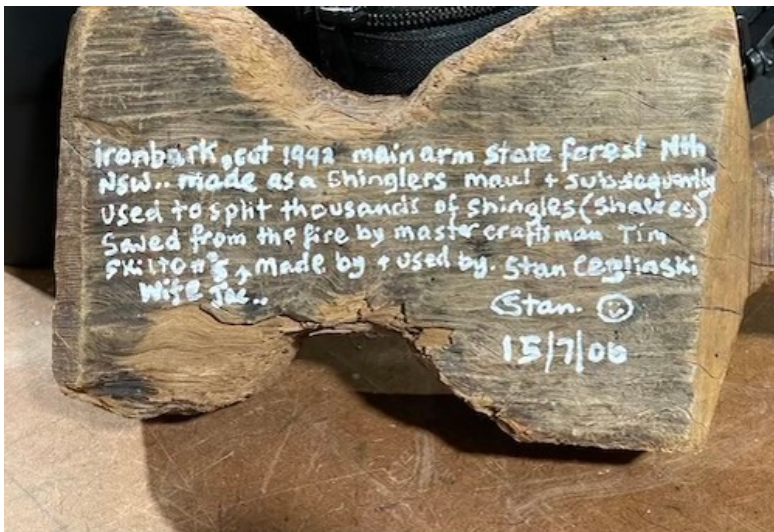 ironbark, cut 1992 main arm state forest Nth
NSW.. made as a Shinglers maul + subsequently
used to split thousands of shingles (Shakes)
Saved from the fire by master craftsman Tim
Skilton's, made by + used by. Stan Ceglinski
Wife Jac..
Stan. ☺
15/7/06